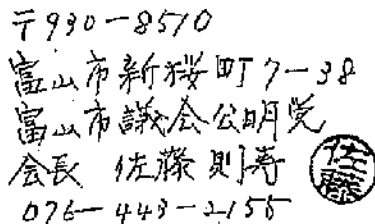 〒930-8510
富山市新桜町7-38
富山市議会公明党
会長 佐藤則寿
076-443-2155
佐藤